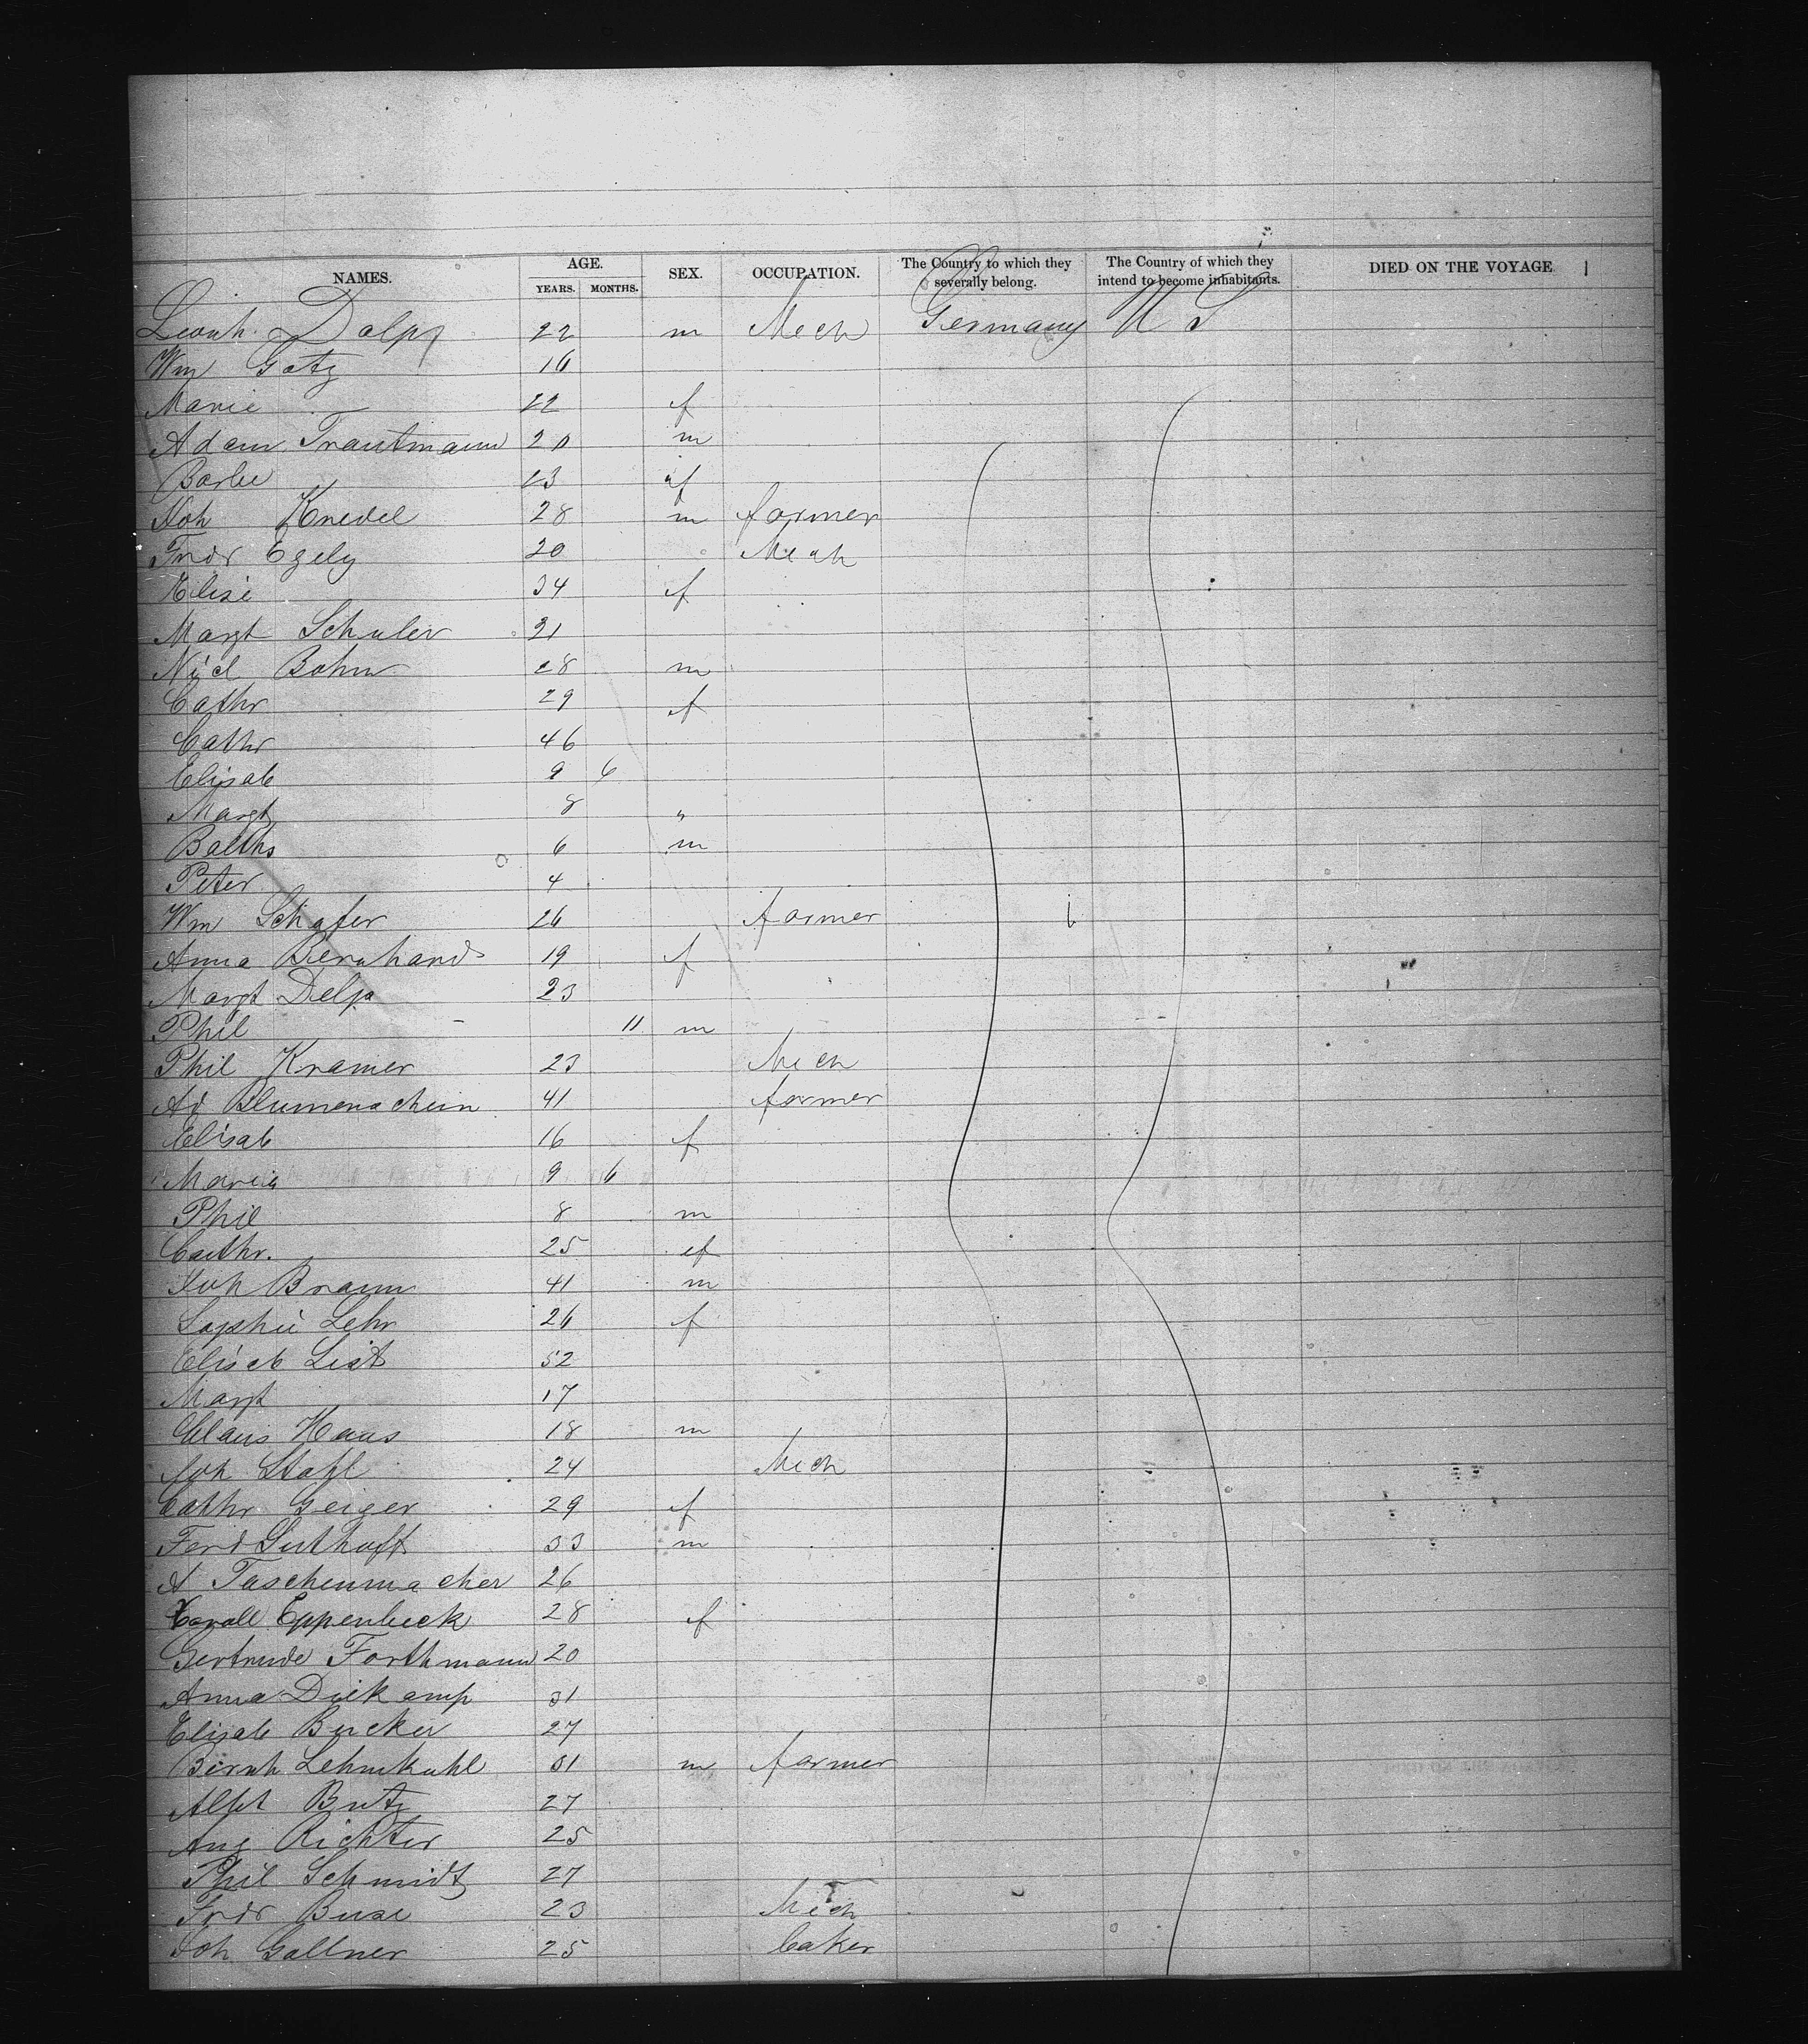 NAMES. AGE. YEARS. MONTHS. SEX. OCCUPATION. The Country to which they severally belong. The Country of which they intend to become inhabitants. DIED ON THE VOYAGE
Leonh. Dolpp 22 m Mech Germany U S
Wm Gotz 16
Marie 22 f
Adam Trautmann 20 m
Barbe 23 f
Joh Knedel 28 m farmer
Fredr Egely 20 Mech
Elise 34 f
Margt Schuler 21
Nicl Bohm 28 m
Cathr 29 f
Cathr 46
Elisab 9 6
Margt 8 "
Balths 6 m
Peter 4
Wm Schafer 26 farmer
Anna Bernhard 19 f
Margt Delp 23
Phil 11 m
Phil Kramer 23 Mech
Ad Blumenschein 41 farmer
Elisab 16 f
Maria 9 6
Phil 8 m
Cathr. 25 f
Joh Braun 41 m
Sophie Lehr 26 f
Elisab List 52
Margt 17
Claus Haas 18 m
Joh Stahl 24 Mech
Cathr Geiger 29 f
Ferd Suthoff 33 m
A Taschenmacher 26
Eppenbeck 28 f
Gertrude Forthmann 20
Anna Diekamp 31
Elisab Bucker 27
Bernh Lehmkuhl 31 m farmer
Butz 27
Aug Richter 25
Phil Schmidt 27
Fredr Buse 23 Mech
Joh Gallner 25 baker